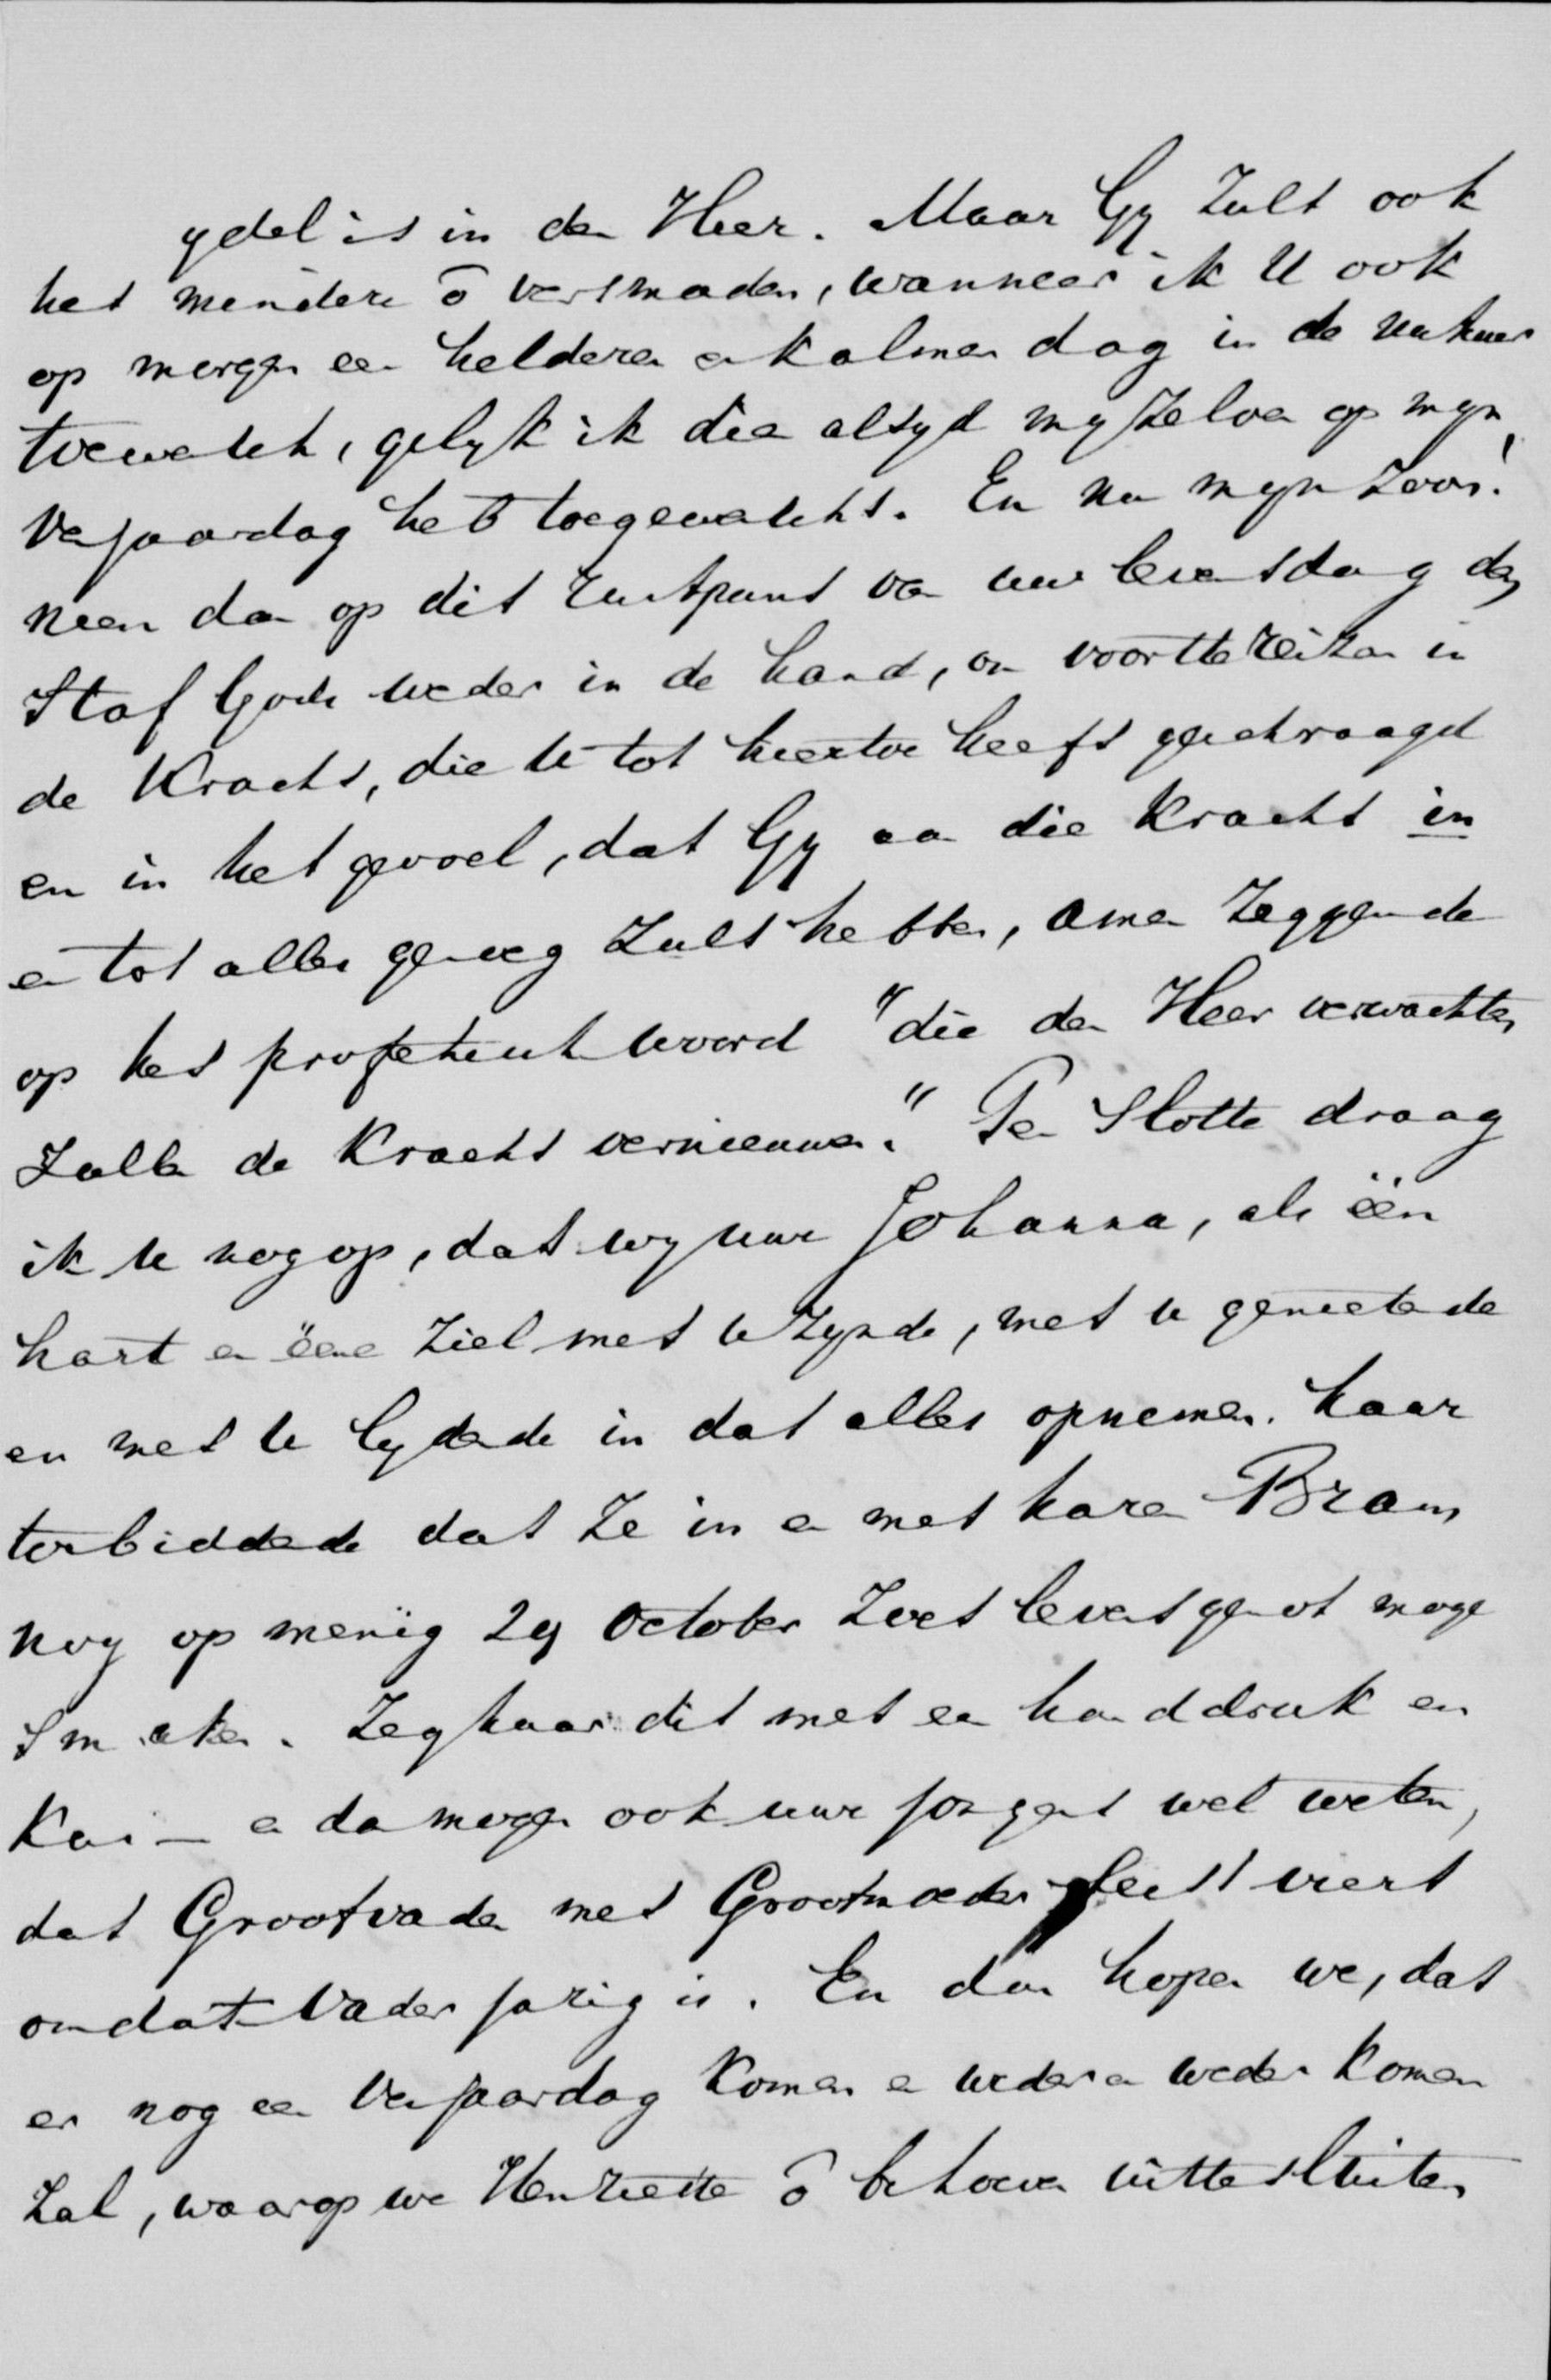 ydel is in den Heer. Maar Gy zult ook
het mindere õ versmaden, wanneer ik U ook
op morgen een helderen en kalmen dag in de natuur
toewensch, gelyk ik dien altyd my zelven op myn
Verjaardag heb toegewenscht. En nu myn zoon!
neem dan op dit rustpunt van uw levensdag den
Staf Gods weder in de hand, om voortte reizen in
de Kracht, die U tot hiertoe heeft geschraagd
en in het gevoel, dat Gy aan die Kracht in
en tot alles genoeg zult hebben, amen zeggende
op het profetisch woord "die den Heer verwachten
zullen de Kracht vernieuwen." Ten Slotte draag
ik U nog op, dat wy uwe Johanna, als één
hart en ééne ziel met U zynde, met U genietende
en met U lydende in dat alles opnemen. haar
toebiddende dat ze in en met haren Bram
nog op menig 29 October zoet levensgenot moge
smaken. Zeg haar dit met een handdruk en
Kus — en dan mogen ook uwe jongens wel weten,
dat Grootvader met Grootmoeder feest viert
omdat Vader jarig is. En dan hopen we, dat
er nog een Verjaardag Komen en weder en weder Komen
zal, waarop we Henriette õ behoeven uittesluiten